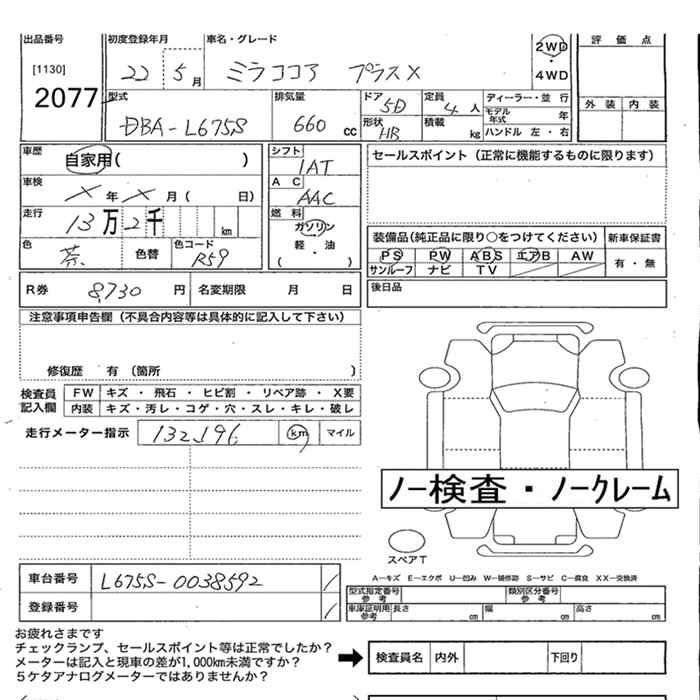 出品番号 初度登録年月 車名・グレード 評価点
[1130] 22 5月 ミラココア プラスX 2WD・4WD
2077 外装 内装
型式 排気量 ドア 5D 定員 4人 ディーラー・並行
DBA-L675S 660cc 形状 HB 積載 kg モデル年式 年
ハンドル 左・右
車歴 自家用( ) シフト IAT セールスポイント(正常に機能するものに限ります)
車検 X年X月( 日) AC AAC
走行 13万2千 km 燃料 ガソリン 軽・油 ( )
装備品(純正品に限り○をつけてください) 新車保証書
色 茶. 色替 色コード R59 PS PW ABS エアB AW 有・無
サンルーフ ナビ TV
R券 8,730円 名変期限 月 日 後日品
注意事項申告欄(不具合内容等は具体的に記入して下さい)
修復歴 有(箇所 )
検査員記入欄 FW キズ・飛石・ヒビ割・リペア跡・X要
内装 キズ・汚レ・コゲ・穴・スレ・キレ・破レ
走行メーター指示 132,196 km マイル
ノー検査・ノークレーム
スペアT
A−キズ E−エクボ U−凹み W−補修跡 S−サビ C−腐食 XX−交換済
車台番号 L675S-0038592 /
登録番号 /
型式指定番号 参考 類別区分番号 参考
車庫証明用 参考 長さ cm 幅 cm 高さ cm
お疲れさまです
チェックランプ、セールスポイント等は正常でしたか?
メーターは記入と現車の差が1,000km未満ですか?
5ケタアナログメーターではありませんか?
検査員名 内外 下回り